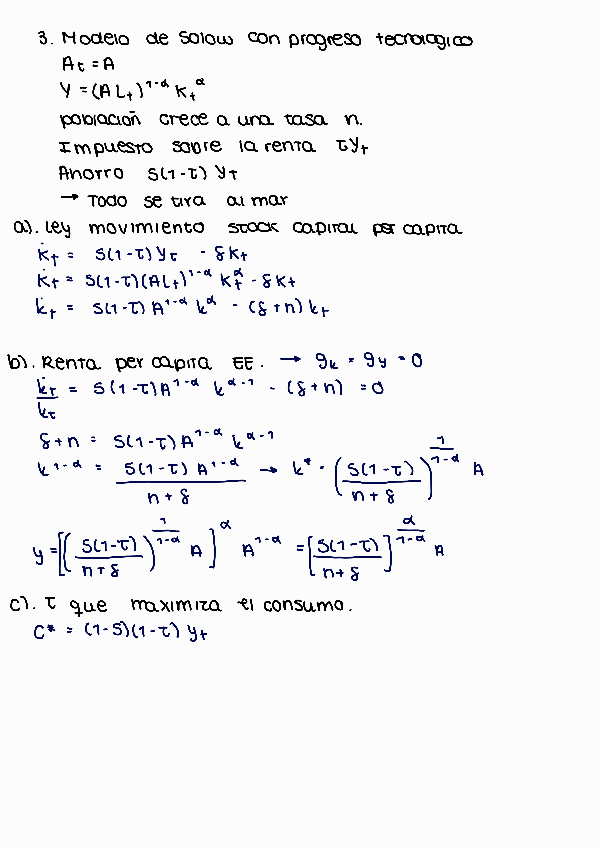 3. Modelo de Solow con progreso tecnologico
At = A
Y = (A Lt)^1-α Kt^α
población crece a una tasa n.
Impuesto sobre la renta τYt
Ahorro S(1-τ) Yt
→ Todo se tira al mar
a). Ley movimiento stock capital per capita
K̇t = S(1-τ) Yt - δKt
K̇t = S(1-τ)(ALt)^1-α Kt^α - δKt
k̇t = S(1-τ) A^1-α k^α - (δ+n) kt
b). Renta per capita EE. → gk = gy = 0
k̇t/kt = S(1-τ)A^1-α k^α-1 - (δ+n) = 0
δ+n = S(1-τ) A^1-α k^α-1
k^1-α = S(1-τ) A^1-α / n+δ → k* = (S(1-τ) / n+δ)^1/1-α A
y = [(S(1-τ) / n+δ)^1/1-α A]^α A^1-α = [S(1-τ) / n+δ]^α/1-α A
c). τ que maximiza el consumo.
C* = (1-S)(1-τ) yt